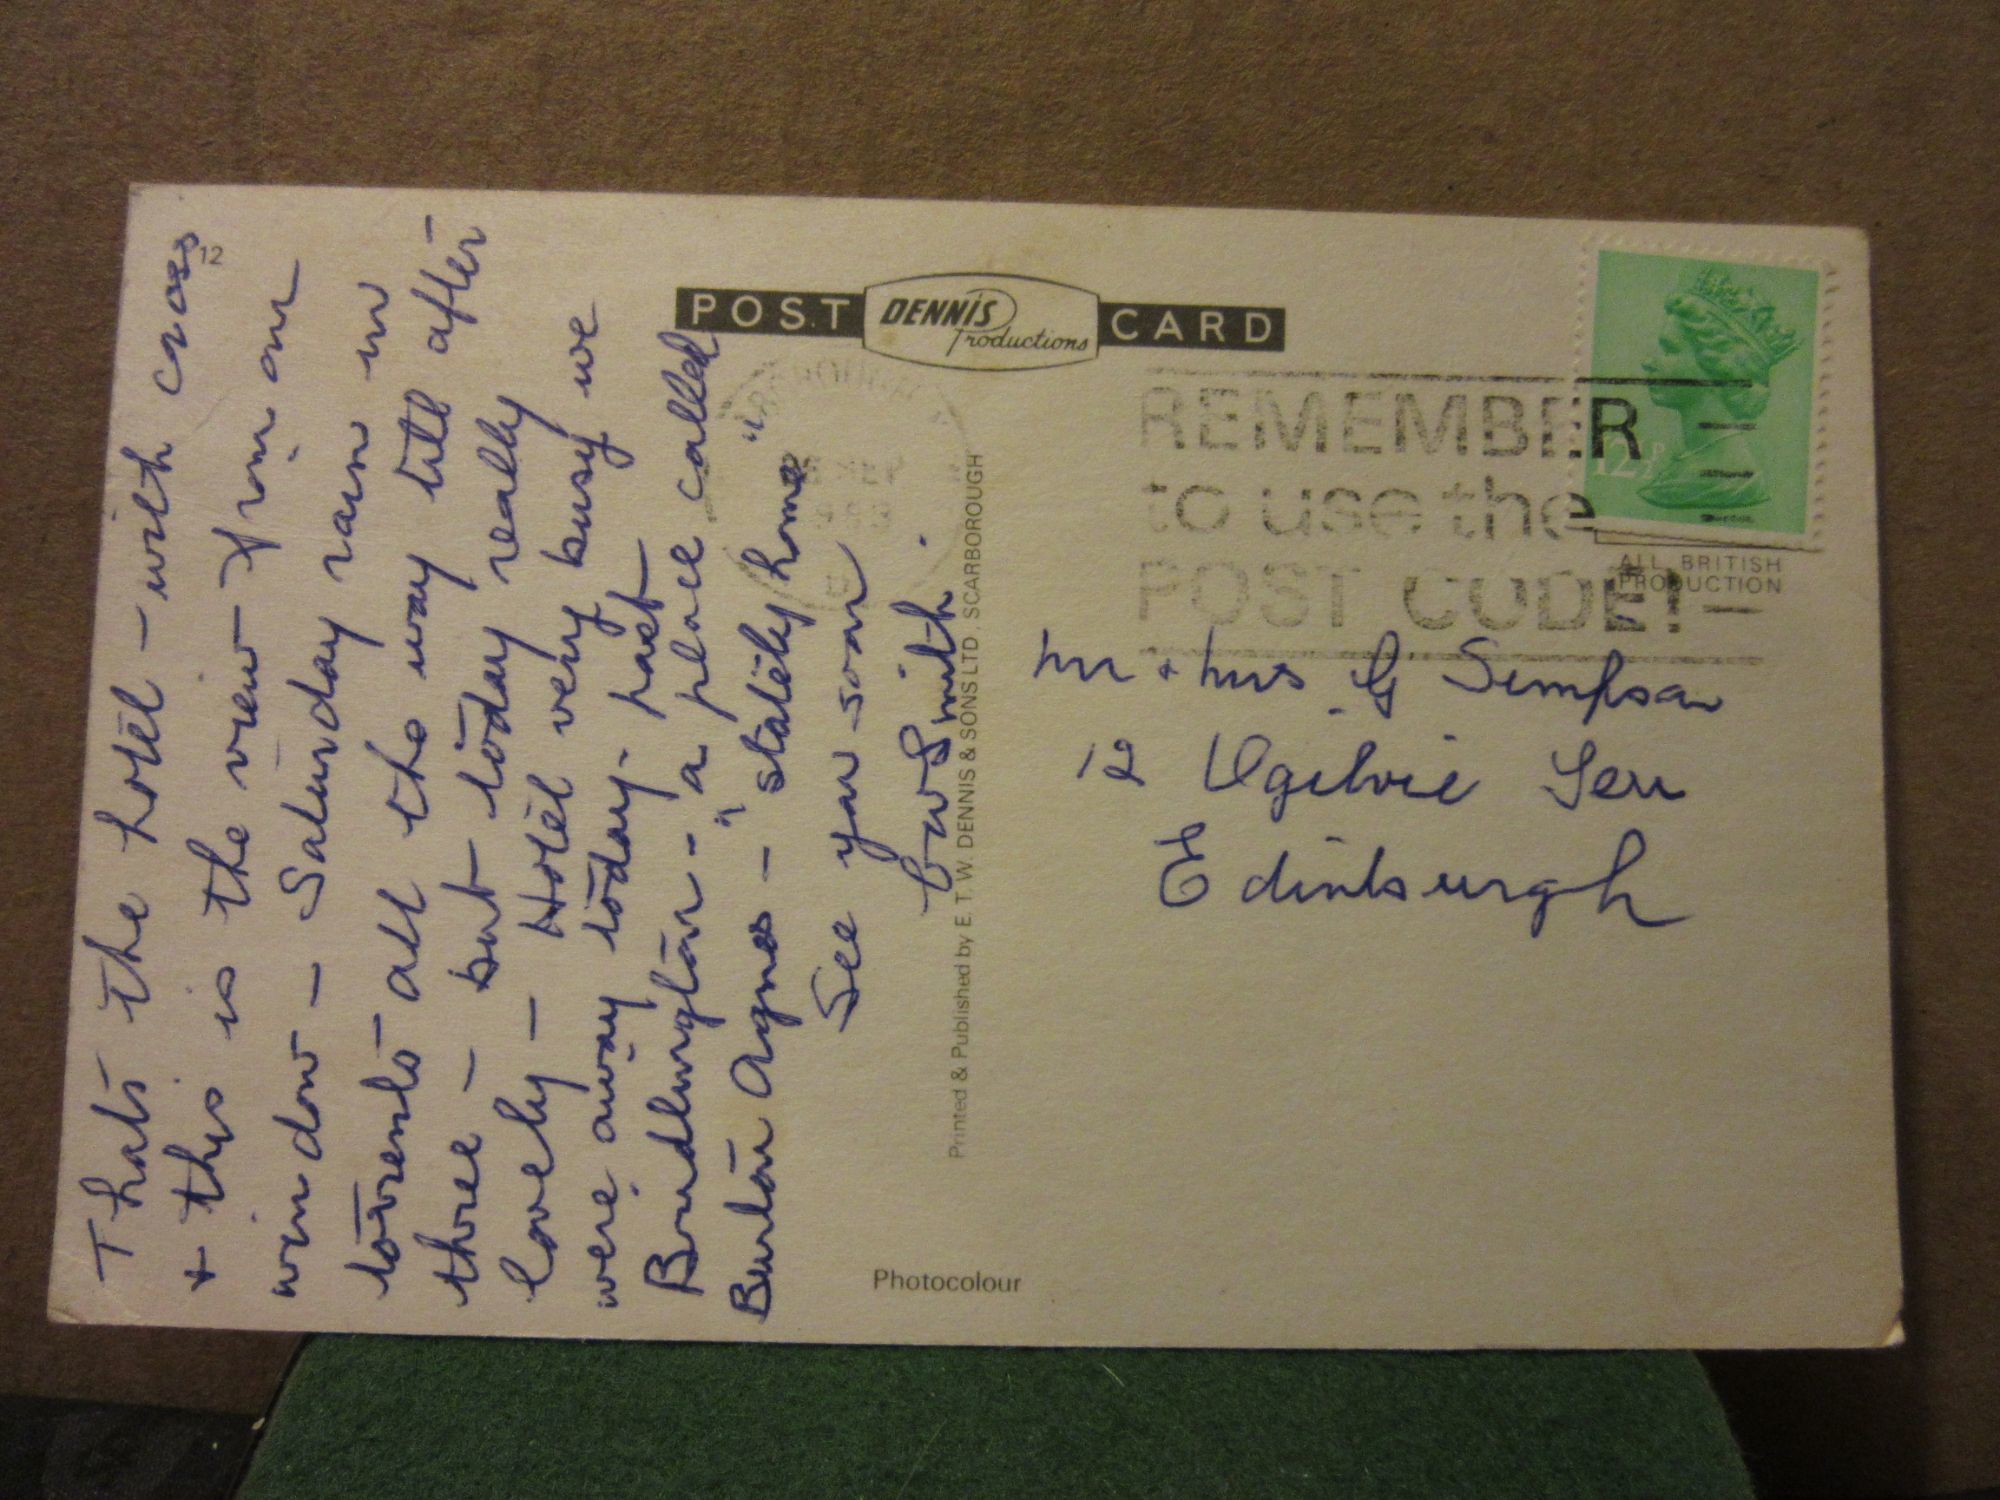 12
Thats the hotel - with cross
+ this is the view from our
window - Saturday rain in
torrents all the way till after
three - but today really
lovely - Hotel very busy we
were away today - past
Bridlington - a place called
Burton Agnes - "stately home"
See you soon
Smith.
POST CARD
DENNIS
Productions
Printed & Published by E. T. W. DENNIS & SONS LTD., SCARBOROUGH
Photocolour
REMEMBER
to use the
POST CODE!
12½P
ALL BRITISH
PRODUCTION
Mr + Mrs G Simpson
12 Ogilvie Terr
Edinburgh